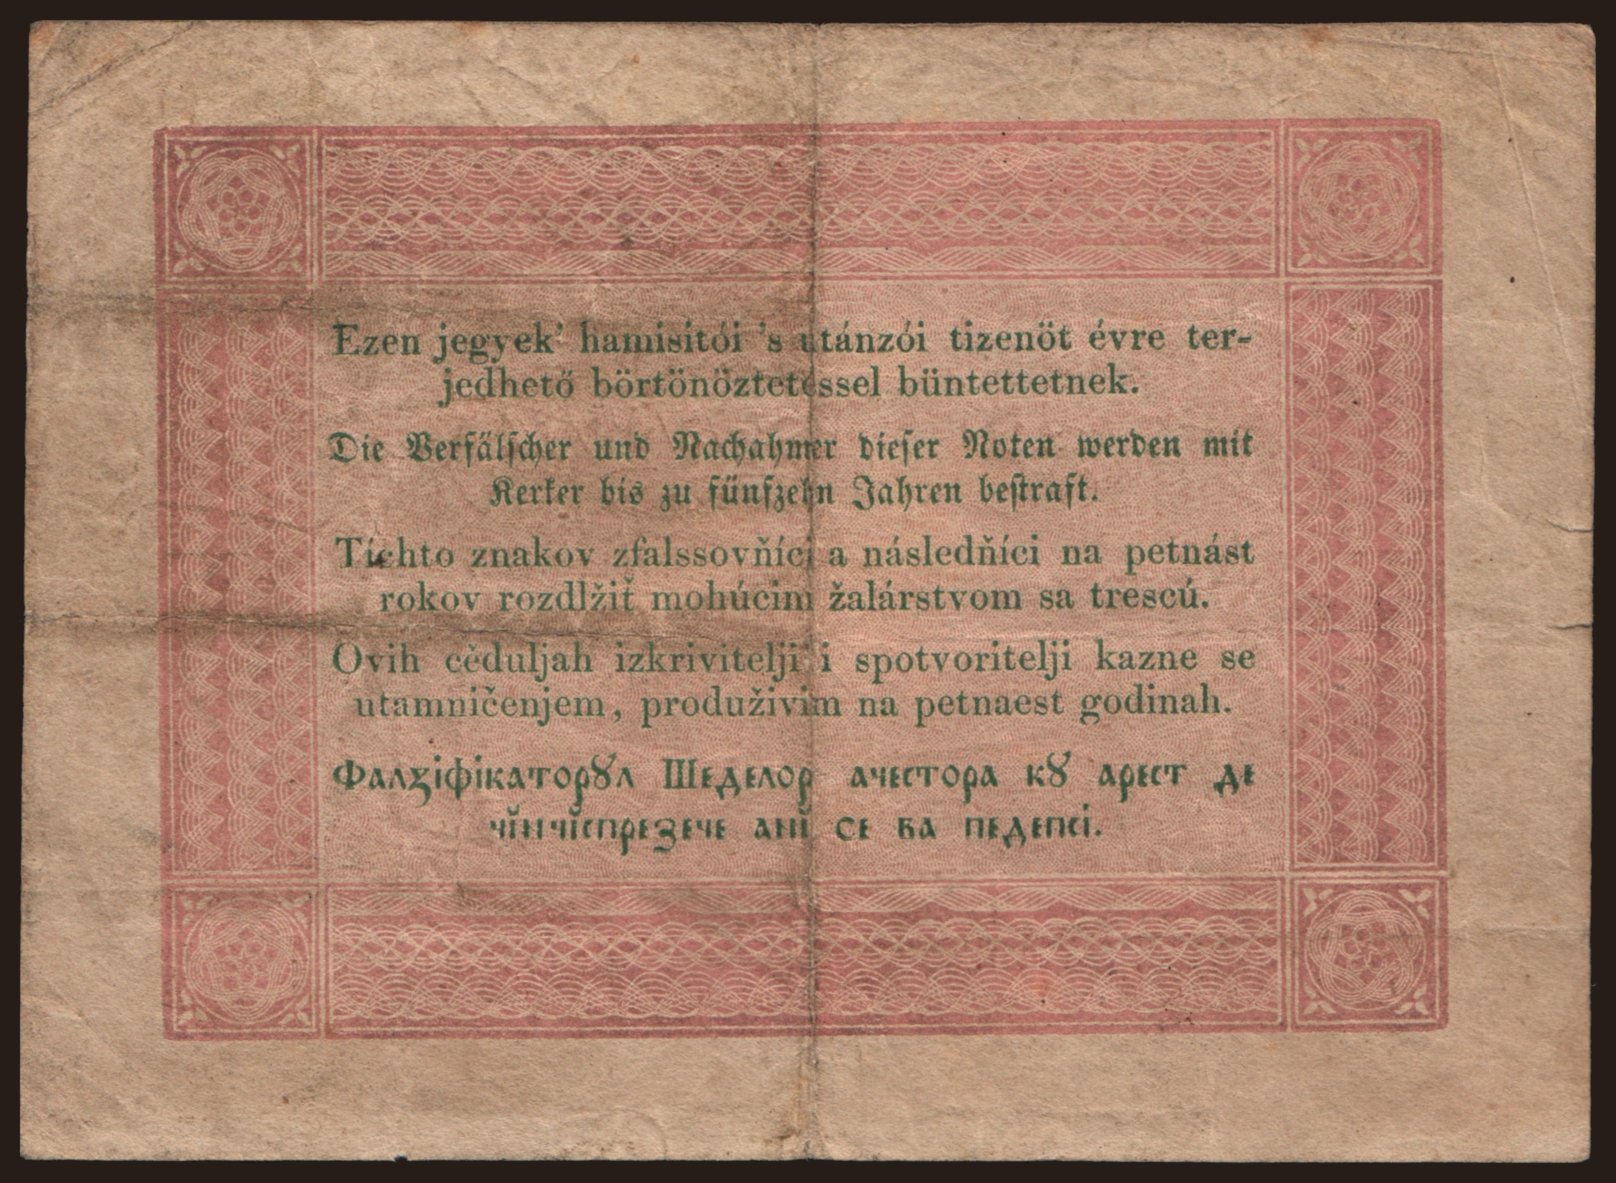 Ezen jegyek' hamisitói 's utánzói tizenöt évre ter-
jedhető börtönöztetéssel büntettetnek.
Die Verfälscher und Nachahmer dieser Noten werden mit
Kerker bis zu fünfzehn Jahren bestraft.
Tíchto znakov zfalssovňíci a následňíci na petnást
rokov rozdlžiť mohúcim žalárstvom sa trescú.
Ovih cěduljah izkrivitelji i spotvoritelji kazne se
utamničenjem, produživim na petnaest godinah.
Фалѯіфікаторꙋл Шеделор ачестора кꙋ арест де
чĭнчĭспрезече анĭ се ва педепсі.